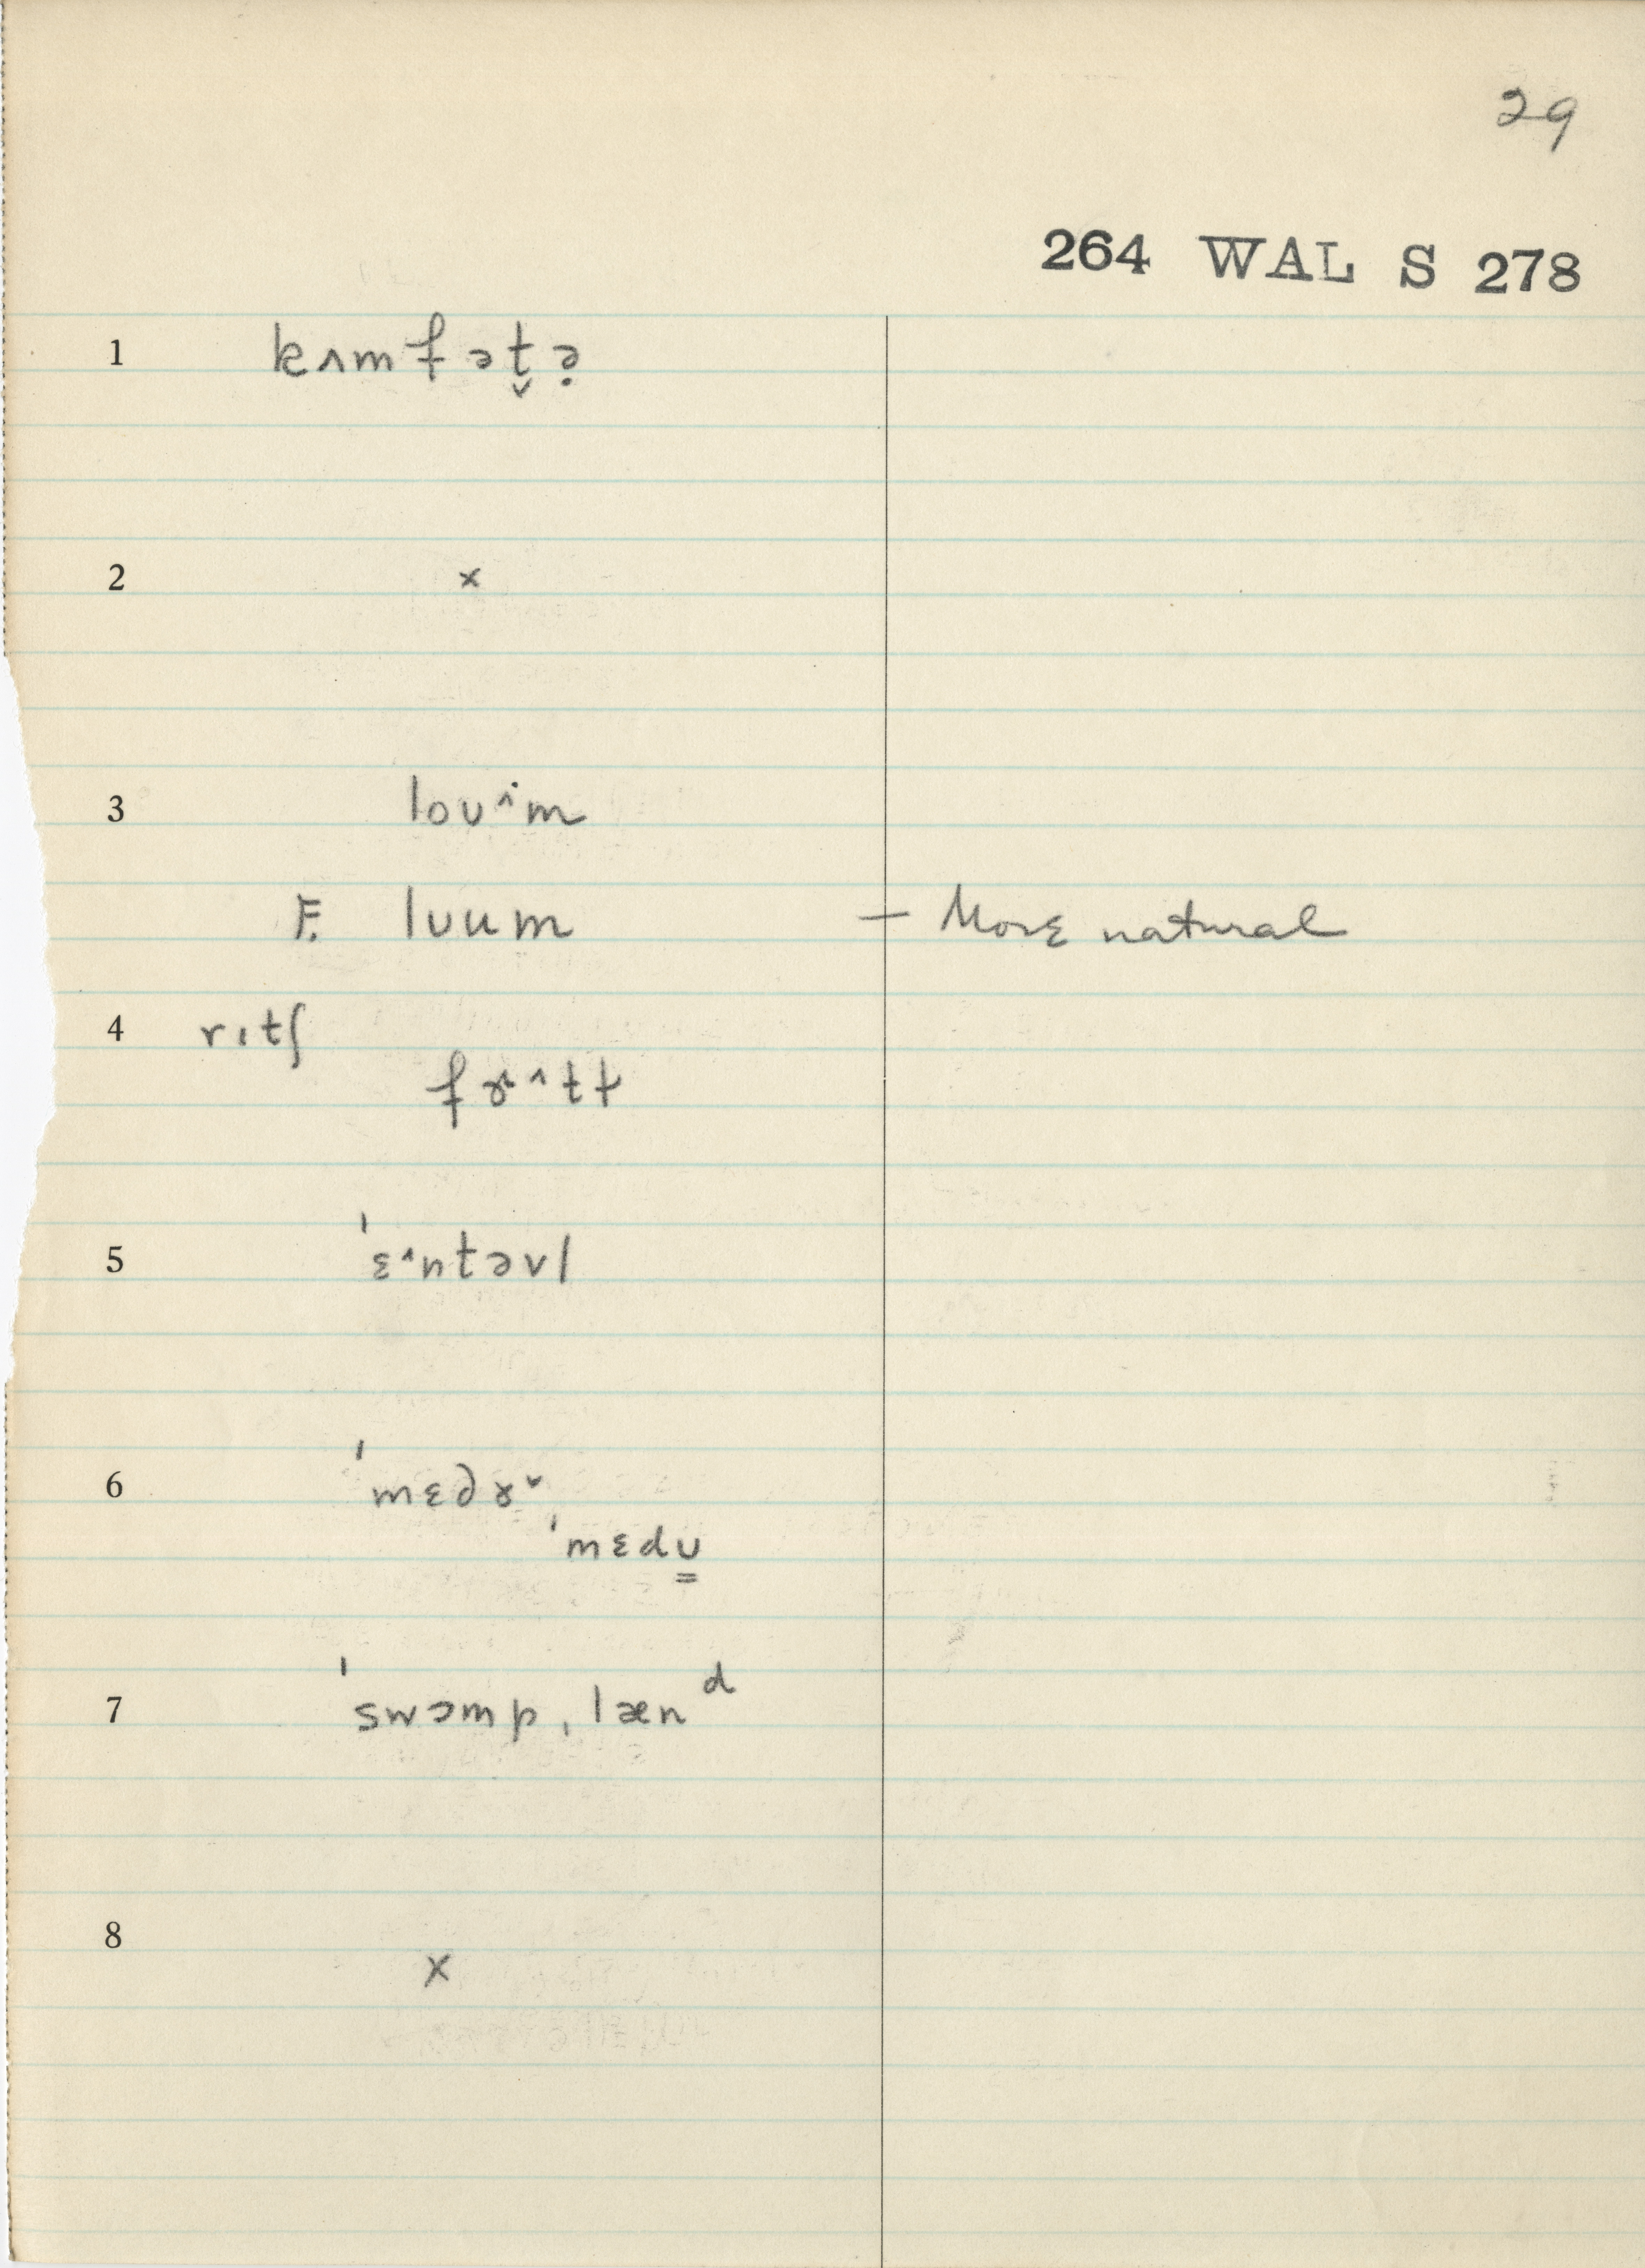 29
264 WAL S 278
1 kʌmfət̬ə̣
2 x
3 loʊ˄i̇m
F. lʊum — More natural
4 rɪtʃ
fɤ˄tt
5 ˈɛ˄ntəvl
6 ˈmɛdɤ˅
ˈmɛdʊ̳
7 ˈswɔmpˌlænᵈ
8 x